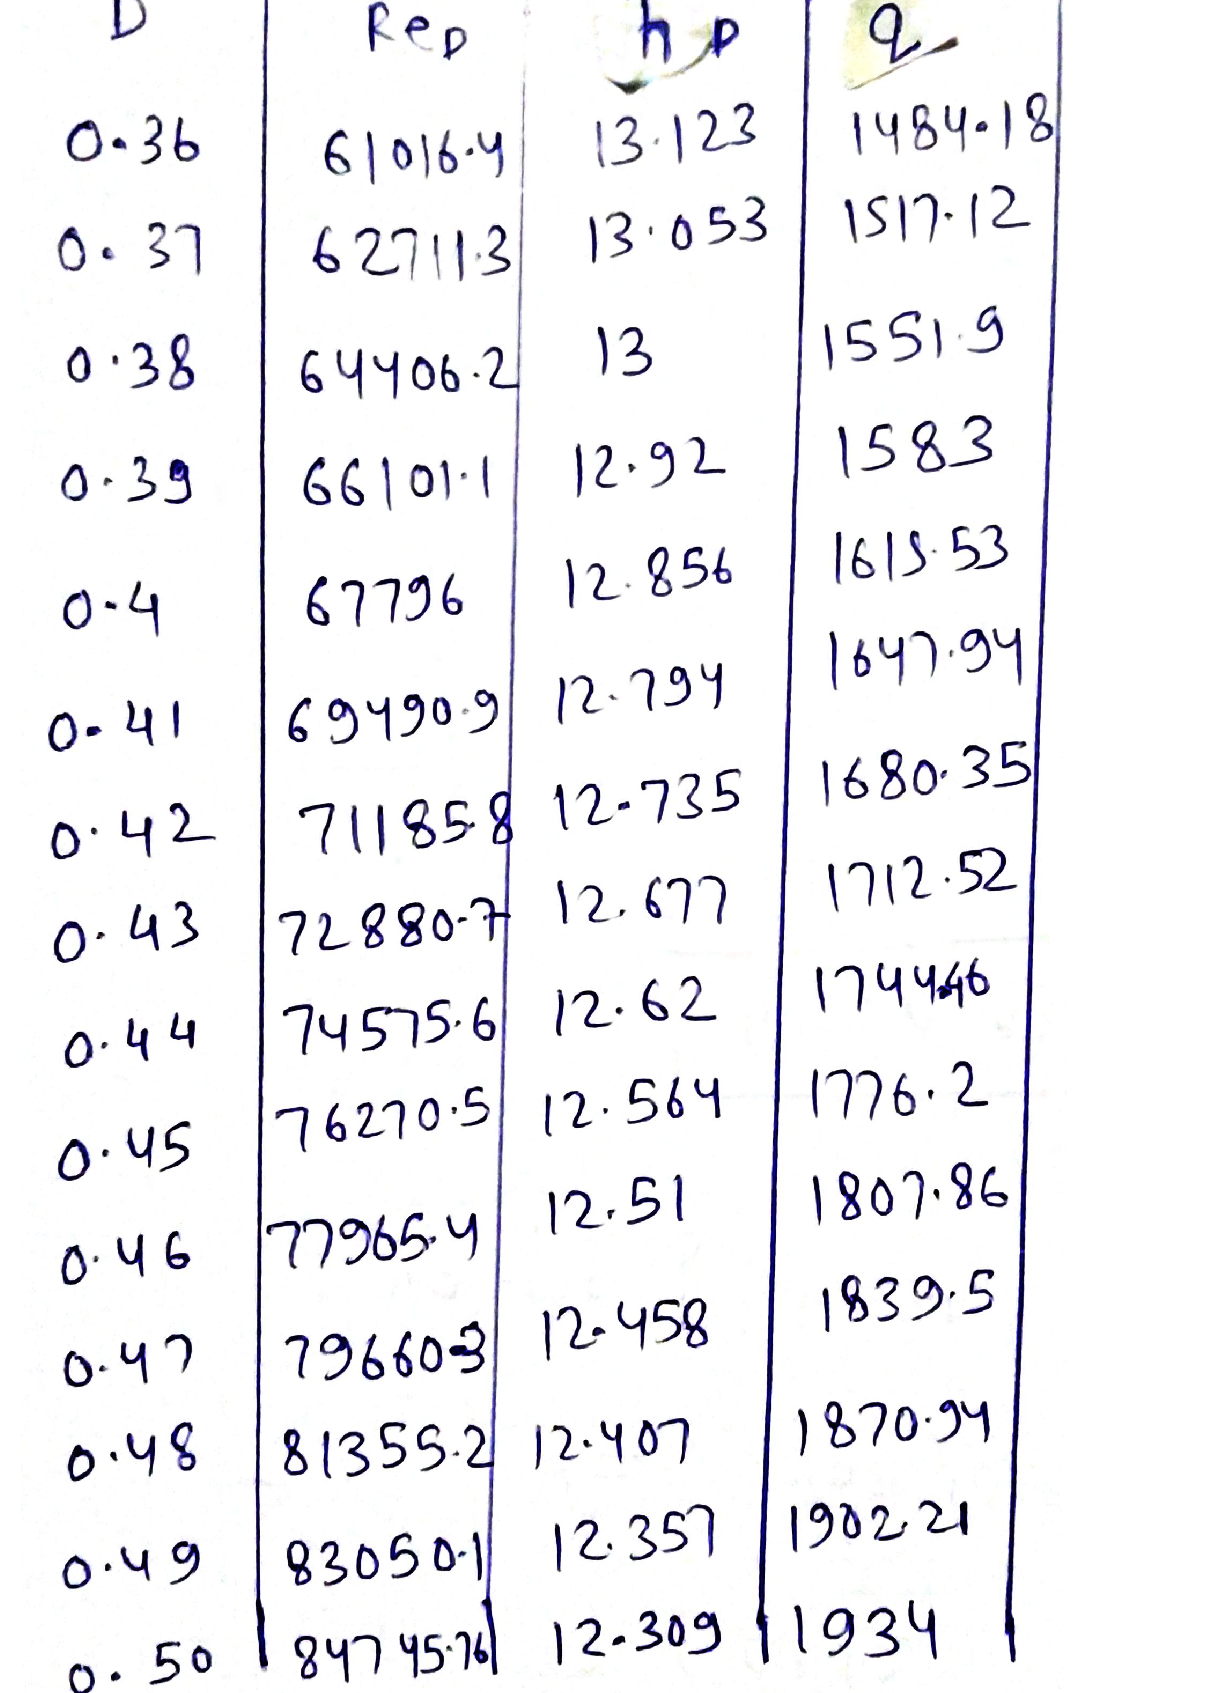 D Re_D h_D q
0.36 61016.4 13.123 1484.18
0.37 62711.3 13.053 1517.12
0.38 64406.2 13 1551.9
0.39 66101.1 12.92 1583
0.4 67796 12.856 1615.53
0.41 69490.9 12.794 1647.94
0.42 71185.8 12.735 1680.35
0.43 72880.7 12.677 1712.52
0.44 74575.6 12.62 1744.46
0.45 76270.5 12.564 1776.2
0.46 77965.4 12.51 1807.86
0.47 79660.3 12.458 1839.5
0.48 81355.2 12.407 1870.94
0.49 83050.1 12.357 1902.21
0.50 84745.76 12.309 1934